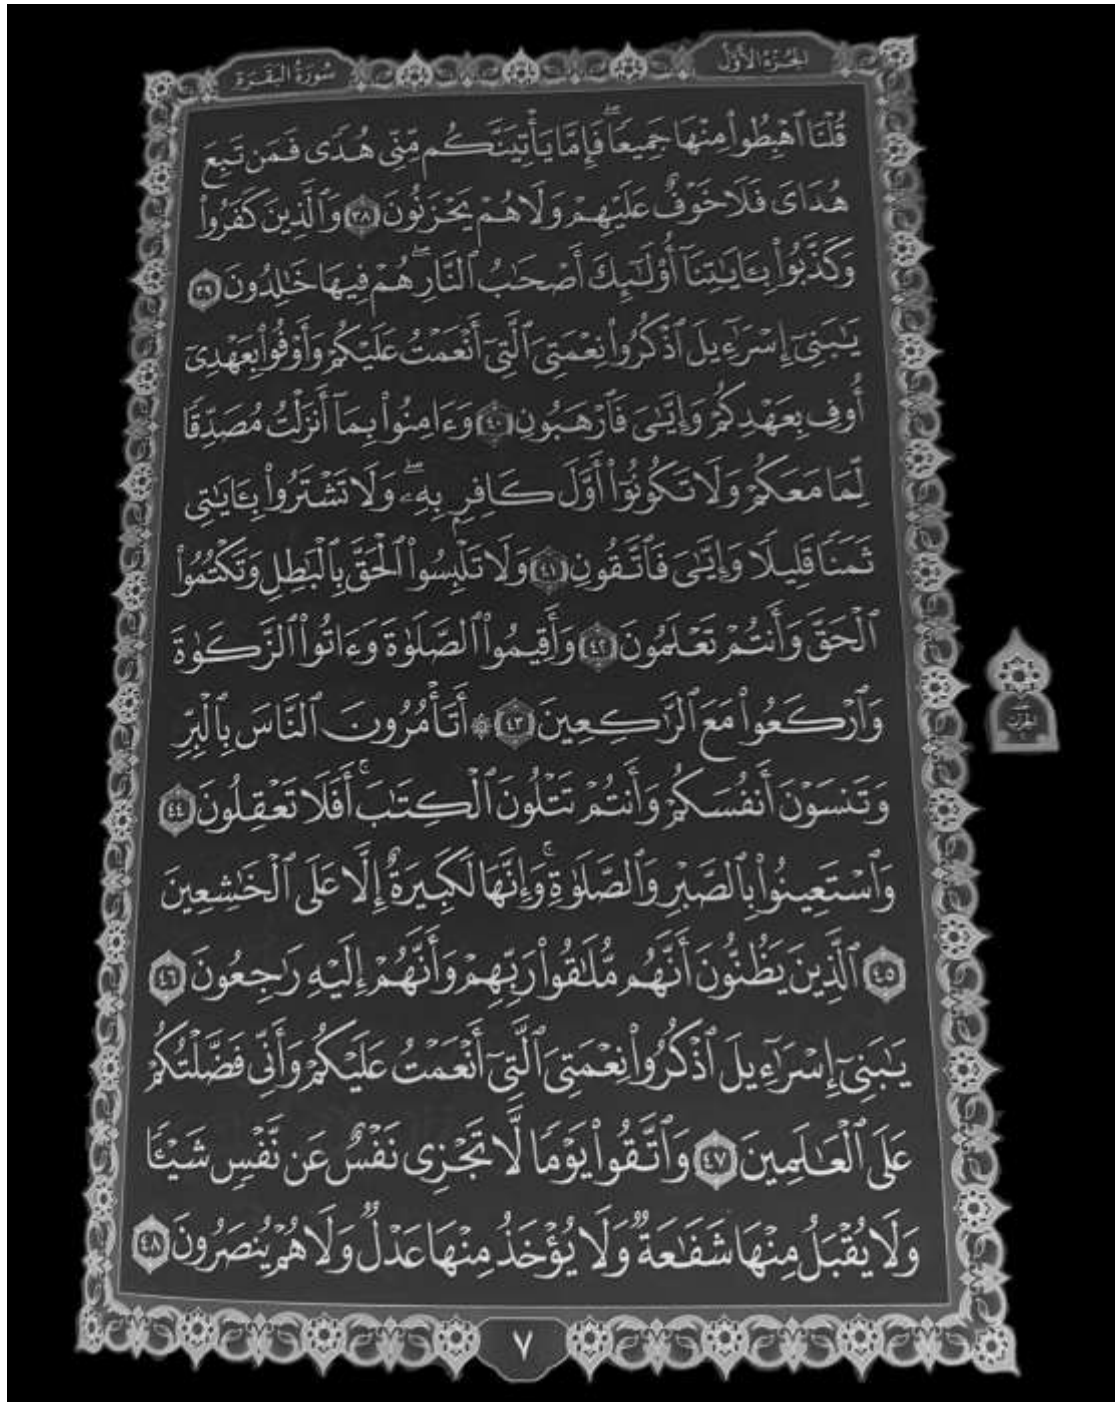 الجزء الأول
سورة البقرة
قُلْنَا ٱهْبِطُوا۟ مِنْهَا جَمِيعًۭا ۖ فَإِمَّا يَأْتِيَنَّكُم مِّنِّى هُدًۭى فَمَن تَبِعَ
هُدَاىَ فَلَا خَوْفٌ عَلَيْهِمْ وَلَا هُمْ يَحْزَنُونَ ٣٨ وَٱلَّذِينَ كَفَرُوا۟
وَكَذَّبُوا۟ بِـَٔايَـٰتِنَآ أُو۟لَـٰٓئِكَ أَصْحَـٰبُ ٱلنَّارِ ۖ هُمْ فِيهَا خَـٰلِدُونَ ٣٩
يَـٰبَنِىٓ إِسْرَٰٓءِيلَ ٱذْكُرُوا۟ نِعْمَتِىَ ٱلَّتِىٓ أَنْعَمْتُ عَلَيْكُمْ وَأَوْفُوا۟ بِعَهْدِىٓ
أُوفِ بِعَهْدِكُمْ وَإِيَّـٰىَ فَٱرْهَبُونِ ٤٠ وَءَامِنُوا۟ بِمَآ أَنزَلْتُ مُصَدِّقًۭا
لِّمَا مَعَكُمْ وَلَا تَكُونُوٓا۟ أَوَّلَ كَافِرٍۭ بِهِۦ ۖ وَلَا تَشْتَرُوا۟ بِـَٔايَـٰتِى
ثَمَنًۭا قَلِيلًۭا وَإِيَّـٰىَ فَٱتَّقُونِ ٤١ وَلَا تَلْبِسُوا۟ ٱلْحَقَّ بِٱلْبَـٰطِلِ وَتَكْتُمُوا۟
ٱلْحَقَّ وَأَنتُمْ تَعْلَمُونَ ٤٢ وَأَقِيمُوا۟ ٱلصَّلَوٰةَ وَءَاتُوا۟ ٱلزَّكَوٰةَ
وَٱرْكَعُوا۟ مَعَ ٱلرَّٰكِعِينَ ٤٣ ۞ أَتَأْمُرُونَ ٱلنَّاسَ بِٱلْبِرِّ
الحزب
وَتَنسَوْنَ أَنفُسَكُمْ وَأَنتُمْ تَتْلُونَ ٱلْكِتَـٰبَ ۚ أَفَلَا تَعْقِلُونَ ٤٤
وَٱسْتَعِينُوا۟ بِٱلصَّبْرِ وَٱلصَّلَوٰةِ ۚ وَإِنَّهَا لَكَبِيرَةٌ إِلَّا عَلَى ٱلْخَـٰشِعِينَ
٤٥ ٱلَّذِينَ يَظُنُّونَ أَنَّهُم مُّلَـٰقُوا۟ رَبِّهِمْ وَأَنَّهُمْ إِلَيْهِ رَٰجِعُونَ ٤٦
يَـٰبَنِىٓ إِسْرَٰٓءِيلَ ٱذْكُرُوا۟ نِعْمَتِىَ ٱلَّتِىٓ أَنْعَمْتُ عَلَيْكُمْ وَأَنِّى فَضَّلْتُكُمْ
عَلَى ٱلْعَـٰلَمِينَ ٤٧ وَٱتَّقُوا۟ يَوْمًۭا لَّا تَجْزِى نَفْسٌ عَن نَّفْسٍۢ شَيْـًۭٔا
وَلَا يُقْبَلُ مِنْهَا شَفَـٰعَةٌۭ وَلَا يُؤْخَذُ مِنْهَا عَدْلٌۭ وَلَا هُمْ يُنصَرُونَ ٤٨
٧